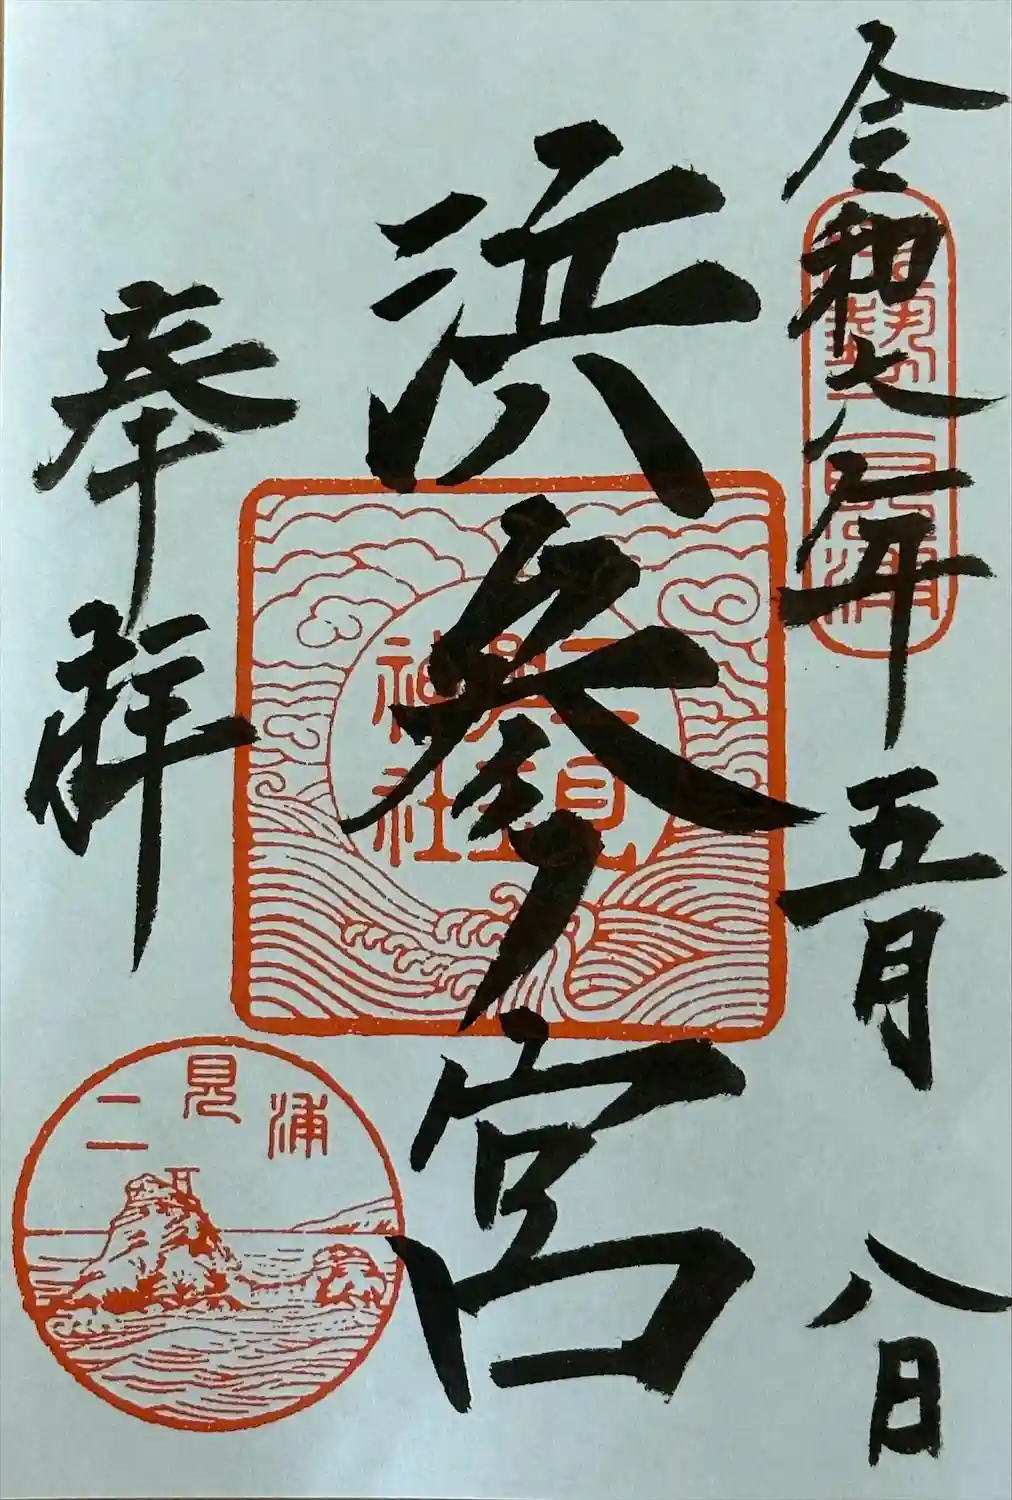 令和七年五月八日
伊勢二見浦
浜参宮
二見興玉神社
奉拝
二見浦